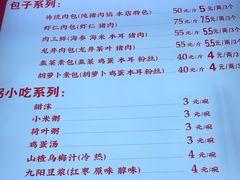 包子系列:
传统肉包(纯猪肉馅 本店特色) 50元/斤 5元/两/3个
虾仁肉包(虾仁 猪肉) 75元/斤 7.5元/两/3个
肉三鲜(海参 海米 木耳 猪肉) 55元/斤 5.5元/两/3个
龙井肉包(龙井茶叶 猪肉) 55元/斤 5.5元/两/3个
韭菜素包(韭菜 鸡蛋 木耳 粉丝) 40元/斤 4元/两/3个
胡萝卜素包(胡萝卜 鸡蛋 木耳 粉丝) 40元/斤 4元/两/3个
粥小吃系列:
甜沫 3元/碗
小米粥 3元/碗
荷叶粥 3元/碗
鸡蛋汤 3元/碗
山楂乌梅汁(冷 热) 4元/碗
九阳豆浆(红枣 原味 醇味) 4元/碗